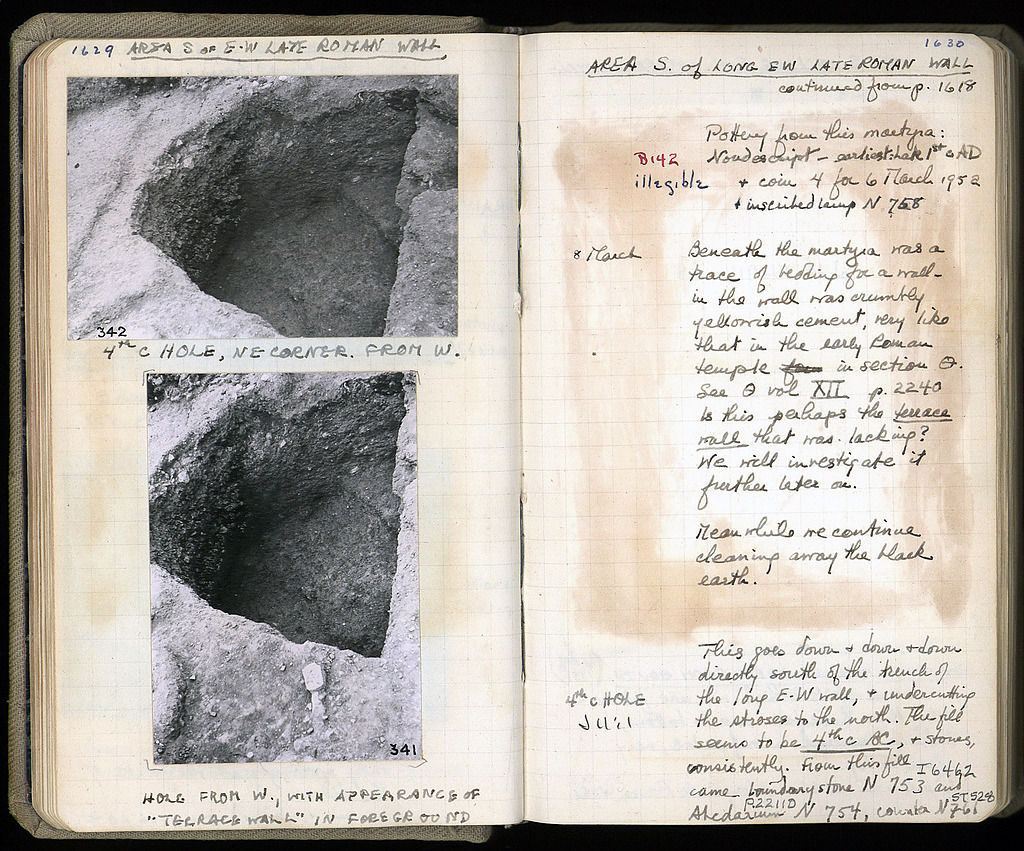 1629 AREA S OF E-W LATE ROMAN WALL
342
4th C HOLE, NE CORNER. FROM W.
341
HOLE FROM W., WITH APPEARANCE OF
"TERRACE WALL" IN FOREGROUND
1630
AREA S. of LONG EW LATE ROMAN WALL
continued from p. 1618
Pottery from this martyra:
B142 Nondescript - earliest: late 1st c AD
illegible + coin 4 for 6 March 1952
+ inscribed lamp N 758
8 March Beneath the martyra was a
trace of bedding for a wall -
in the wall was crumbly
yellowish cement, very like
that in the early Roman
temple in section Θ.
See Θ vol XII p. 2240
Is this perhaps the terrace
wall that was lacking?
We will investigate it
further later on.
Meanwhile we continue
cleaning away the black
earth.
This goes down + down + down
directly south of the trench of
4th C HOLE the long E-W wall, + undercutting
the stroses to the north. The fill
seems to be 4th c BC, + stones,
consistently. From this fill I 6462
came boundary stone N 753 and
P22110 ST 528
Abecedarium N 754, counter N 761